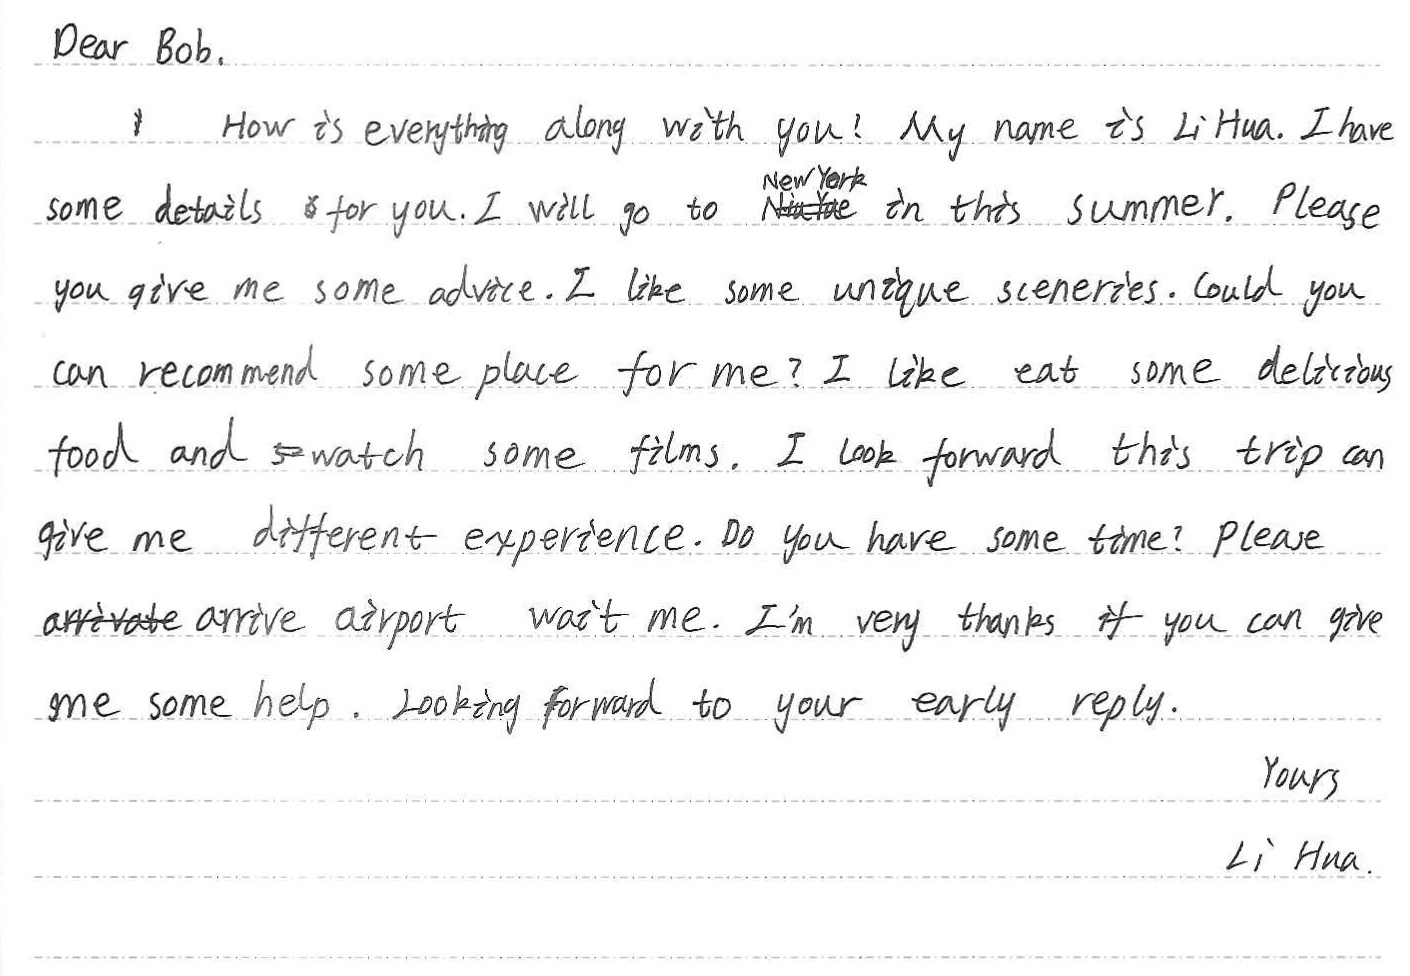 Dear Bob.
How is everything along with you! My name is Li Hua. I have
some details for you. I will go to New York in this summer. Please
you give me some advice. I like some unique sceneries. Could you
can recommend some place for me? I like eat some delicious
food and watch some films. I look forward this trip can
give me different experience. Do you have some time? Please
arrive airport wait me. I'm very thanks if you can give
me some help. Looking forward to your early reply.
Yours
Li Hua.